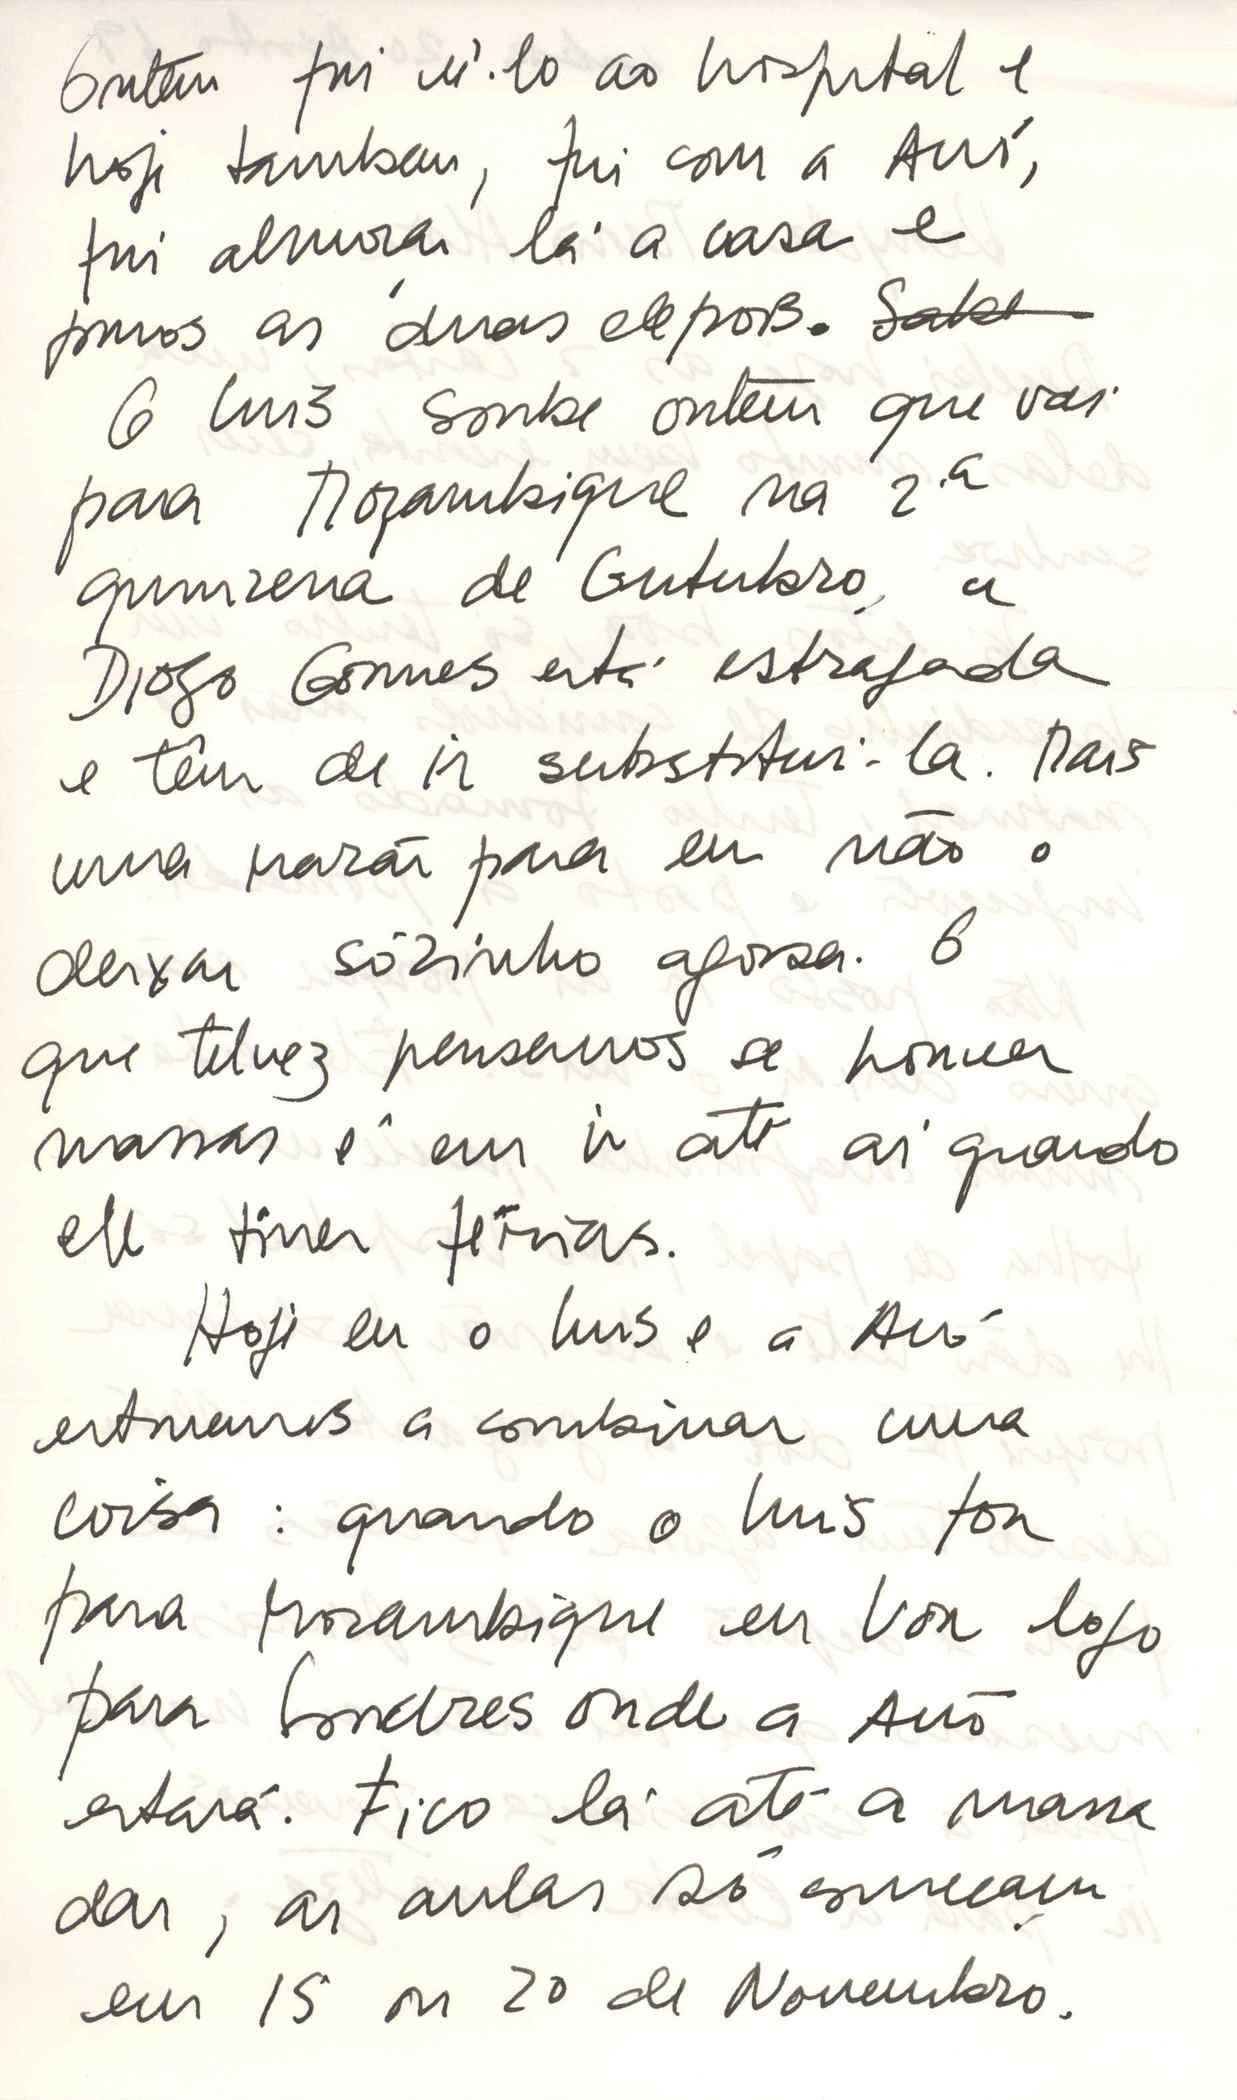 Ontem fui vê-lo ao hospital e
hoje tambem, fui com a Avó,
fui almoçar lá a casa e
fomos as duas depois. Sabe
O Luis soube ontem que vai
para Moçambique na 2.ª
quinzena de Outubro, a
Diogo Gomes está estragada
e têm de ir substitui-la. Mais
uma razão para eu não o
deixar sòzinho agora. O
que talvez pensemos se houver
massas é eu ir até aí quando
ele tiver férias.
Hoje eu o Luis e a Avó
estivemos a combinar uma
coisa : quando o Luis for
para Moçambique eu vou logo
para Londres onde a Avó
estará. Fico lá até a massa
dar, as aulas só começam
em 15 ou 20 de Novembro.